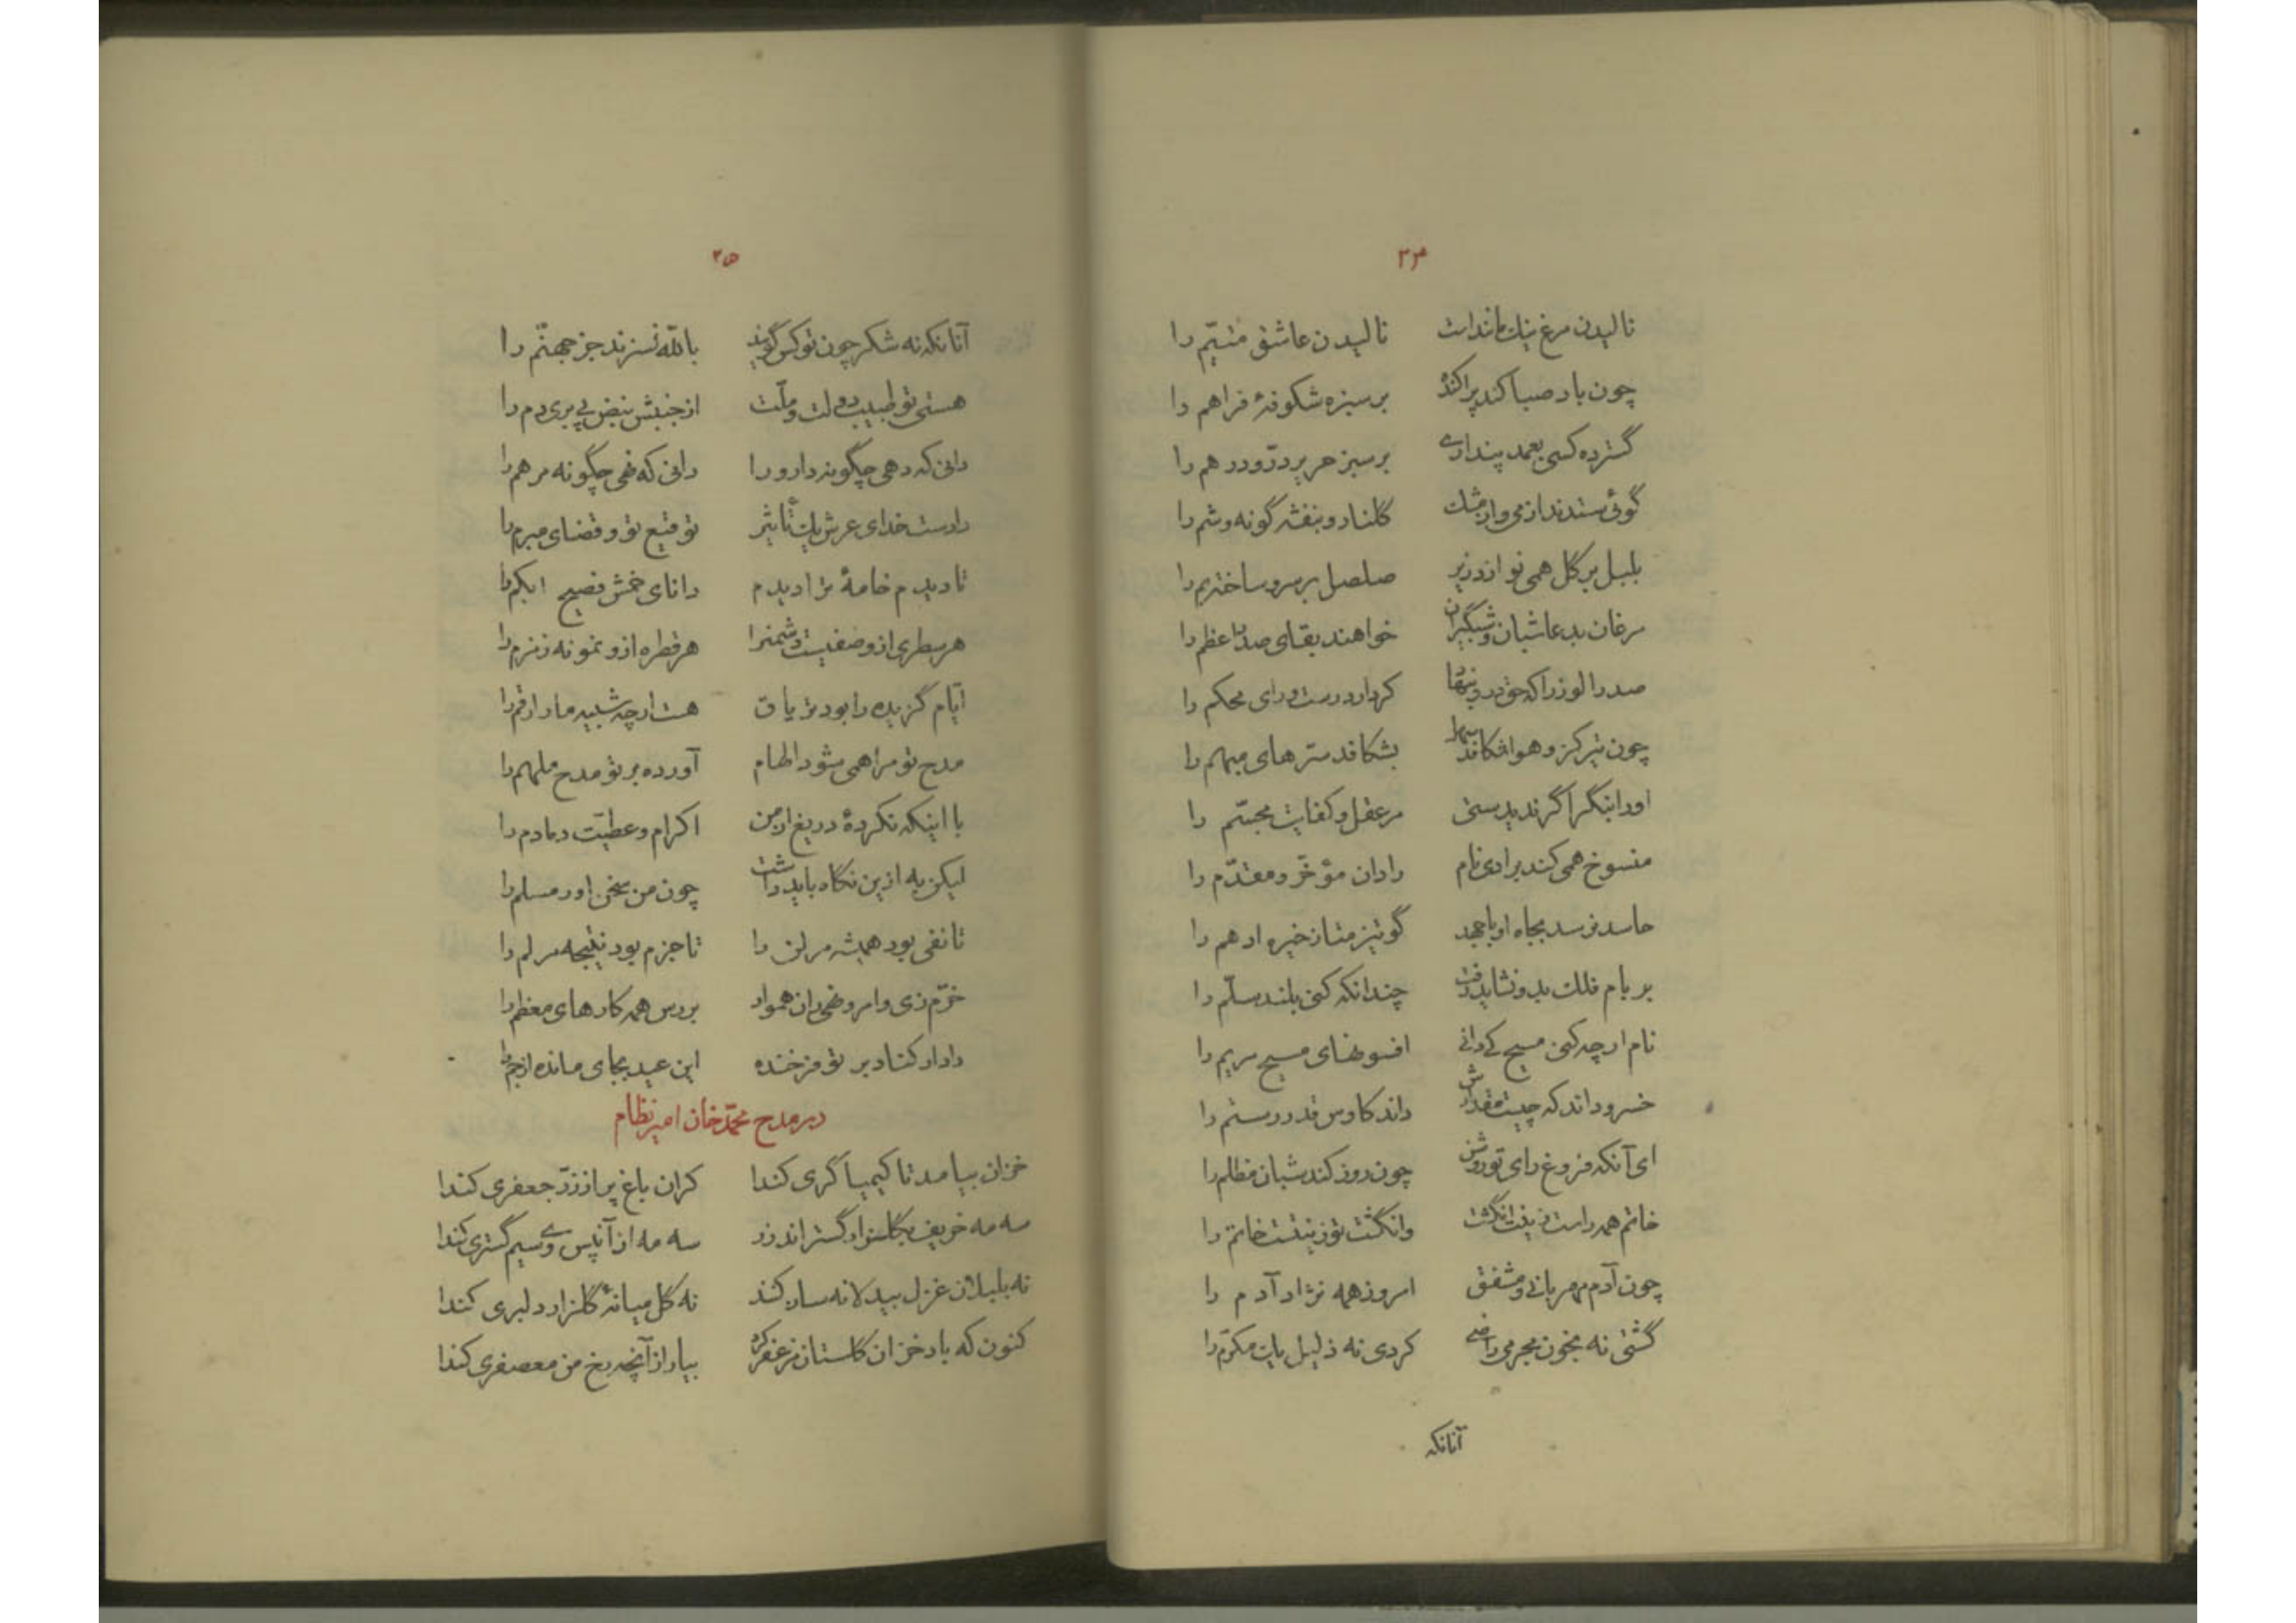 ۳۴
نالیدن مرغ نیك ماند است نالیدن عاشق متیّم را
چون باد صبا کند پراکنده بر سبزه شکوفهٔ فراهم را
گسترده کسی بعمد پنداری بر سبز حریر درّ و درهم را
گوئی ستدند از می و از مشك گلنار و بنفشه گونه و شم را
بلبل بر گل همی نوازد زیر صلصل بر سرو ساخته بم را
مرغان بدعا شبان و شبگیران خواهند بقای صدر اعظم را
صدر الوزرا که حق درو بنهفا کردار درست و رای محکم را
چون تیر کز و هوا شکافد بشکافد سترهای مبهم را
او را بنگر اگر ندیدستی مر عقل و کفایت مجسّم را
منسوخ همی کند برادی نام رادان مؤخّر و مقدّم را
حاسد نرسد بجاه او با جهد گو تیز متاز خیره ادهم را
بر بام فلك بدو نشاید رفت چندانکه کنی بلند سلّم را
نام ار چه کنی مسیح کی دانی افسونهای مسیح مریم را
خسرو داند که چیست مقدارش داند کاوس قدر رستم را
ای آنکه فروغ رای تو روشن چون روز کند شبان مظلم را
خاتم همه راست زینت انگشت وانگشت تو زینتست خاتم را
چون آدم مهربانی و مشفق امروز همه نژاد آدم را
گشتی نه بخون مجرمی راضی کردی نه ذلیل یك مکرّم را
آنانکه
۳۵
آنانکه نه شکر چون تو کس گویند بالله نسزند جز جهنّم را
هستی تو طبیب دولت و ملّت از جنبش نبض پی بری دم را
دانی که دهی چگونه دارو را دانی که نهی چگونه مرهم را
دادست خدای عرش یك تأثیر توقیع تو و قضای مبرم را
تا دیدم خامهٔ ترا دیدم دانای خمش فصیح ابکم را
هر سطری ازو صفیست دشمنرا هر قطره ازو نمونه زمزم را
ایّام گزیده را بود تریاق هست ار چه شبیه مار ارقم را
مدح تو مرا همی شود الهام آورده بر تو مدح ملهم را
با اینکه نکردهٔ دریغ از من اکرام و عطیّت دمادم را
لیکن به ازین نگاه باید داشت چون من سخن اور مسلم را
تا نفی بود همیشه مر لن را تا جزم بود نتیجه مر لم را
خرّم زی و امر و نهی ران هموار بررس همه کارهای معظم را
دادار کناد بر تو فرخنده این عید بجای مانده از جم را
در مدح محمّد خان امیر نظام
خزان بیامد تا کیمیا گری کندا کران باغ پر از زرّ جعفری کندا
سه مه خریف بگلزار گستراند زر سه مه از آن پس وی سیم گستری کندا
نه بلبلان غزل بید لانه ساز کند نه گل میانهٔ گلزار دلبری کندا
کنون که باد خزان گلستان مزعفر کرد بیار از آنچه رخ من معصفری کندا